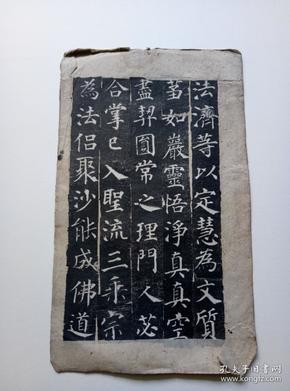 法濟等以定慧為文質
萏如巖靈悟淨真真空
盡契圓常之理門人苾
合掌已入聖流三乘宗
為法侶聚沙能成佛道
孔夫子旧书网